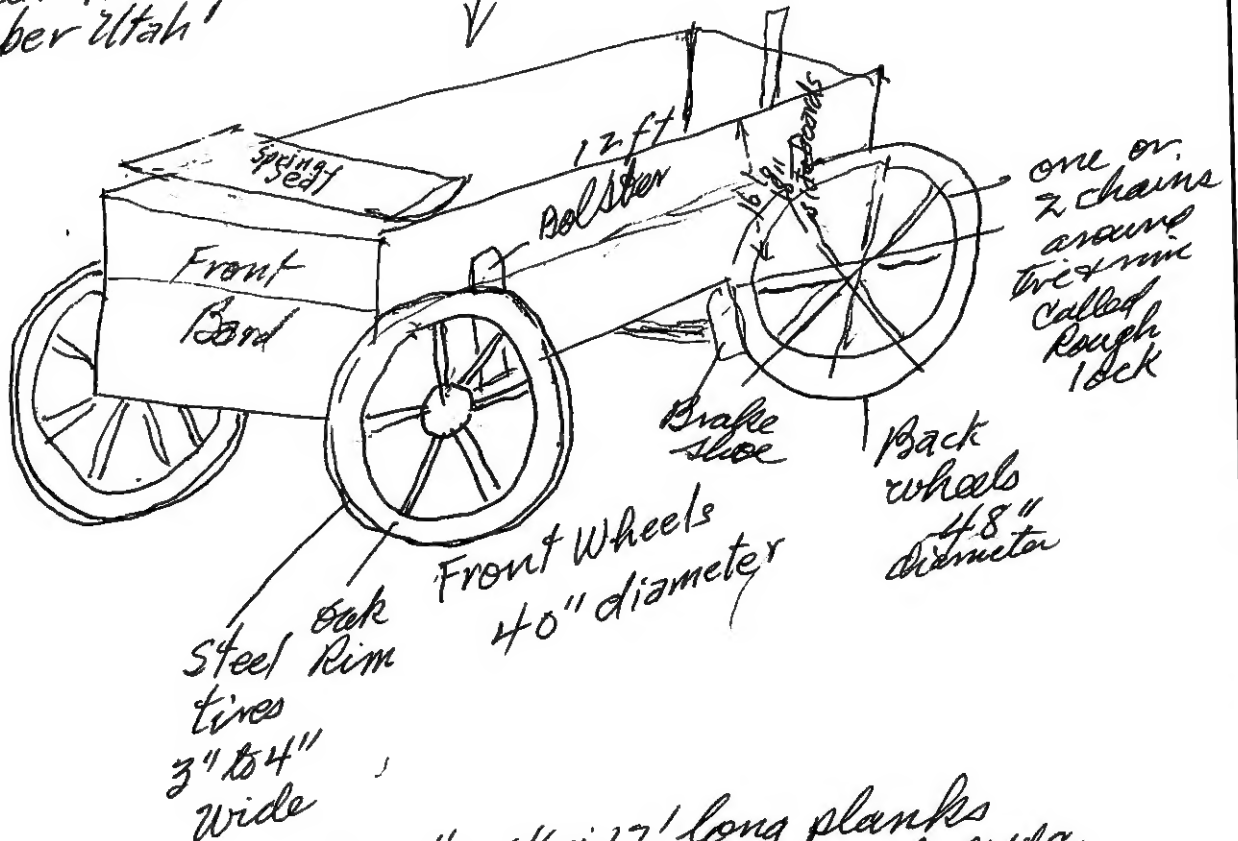 ber Utah"
Spring
Seat
12 ft
Bolster
16"
18"
Front
Board
one or
2 chains
around
tire & rim
called
Rough
lock
Brake
shoe
Back
wheels
48"
diameter
Front Wheels
40" diameter
Oak
Rim
Steel
tires
3" to 4"
wide
12' long planks